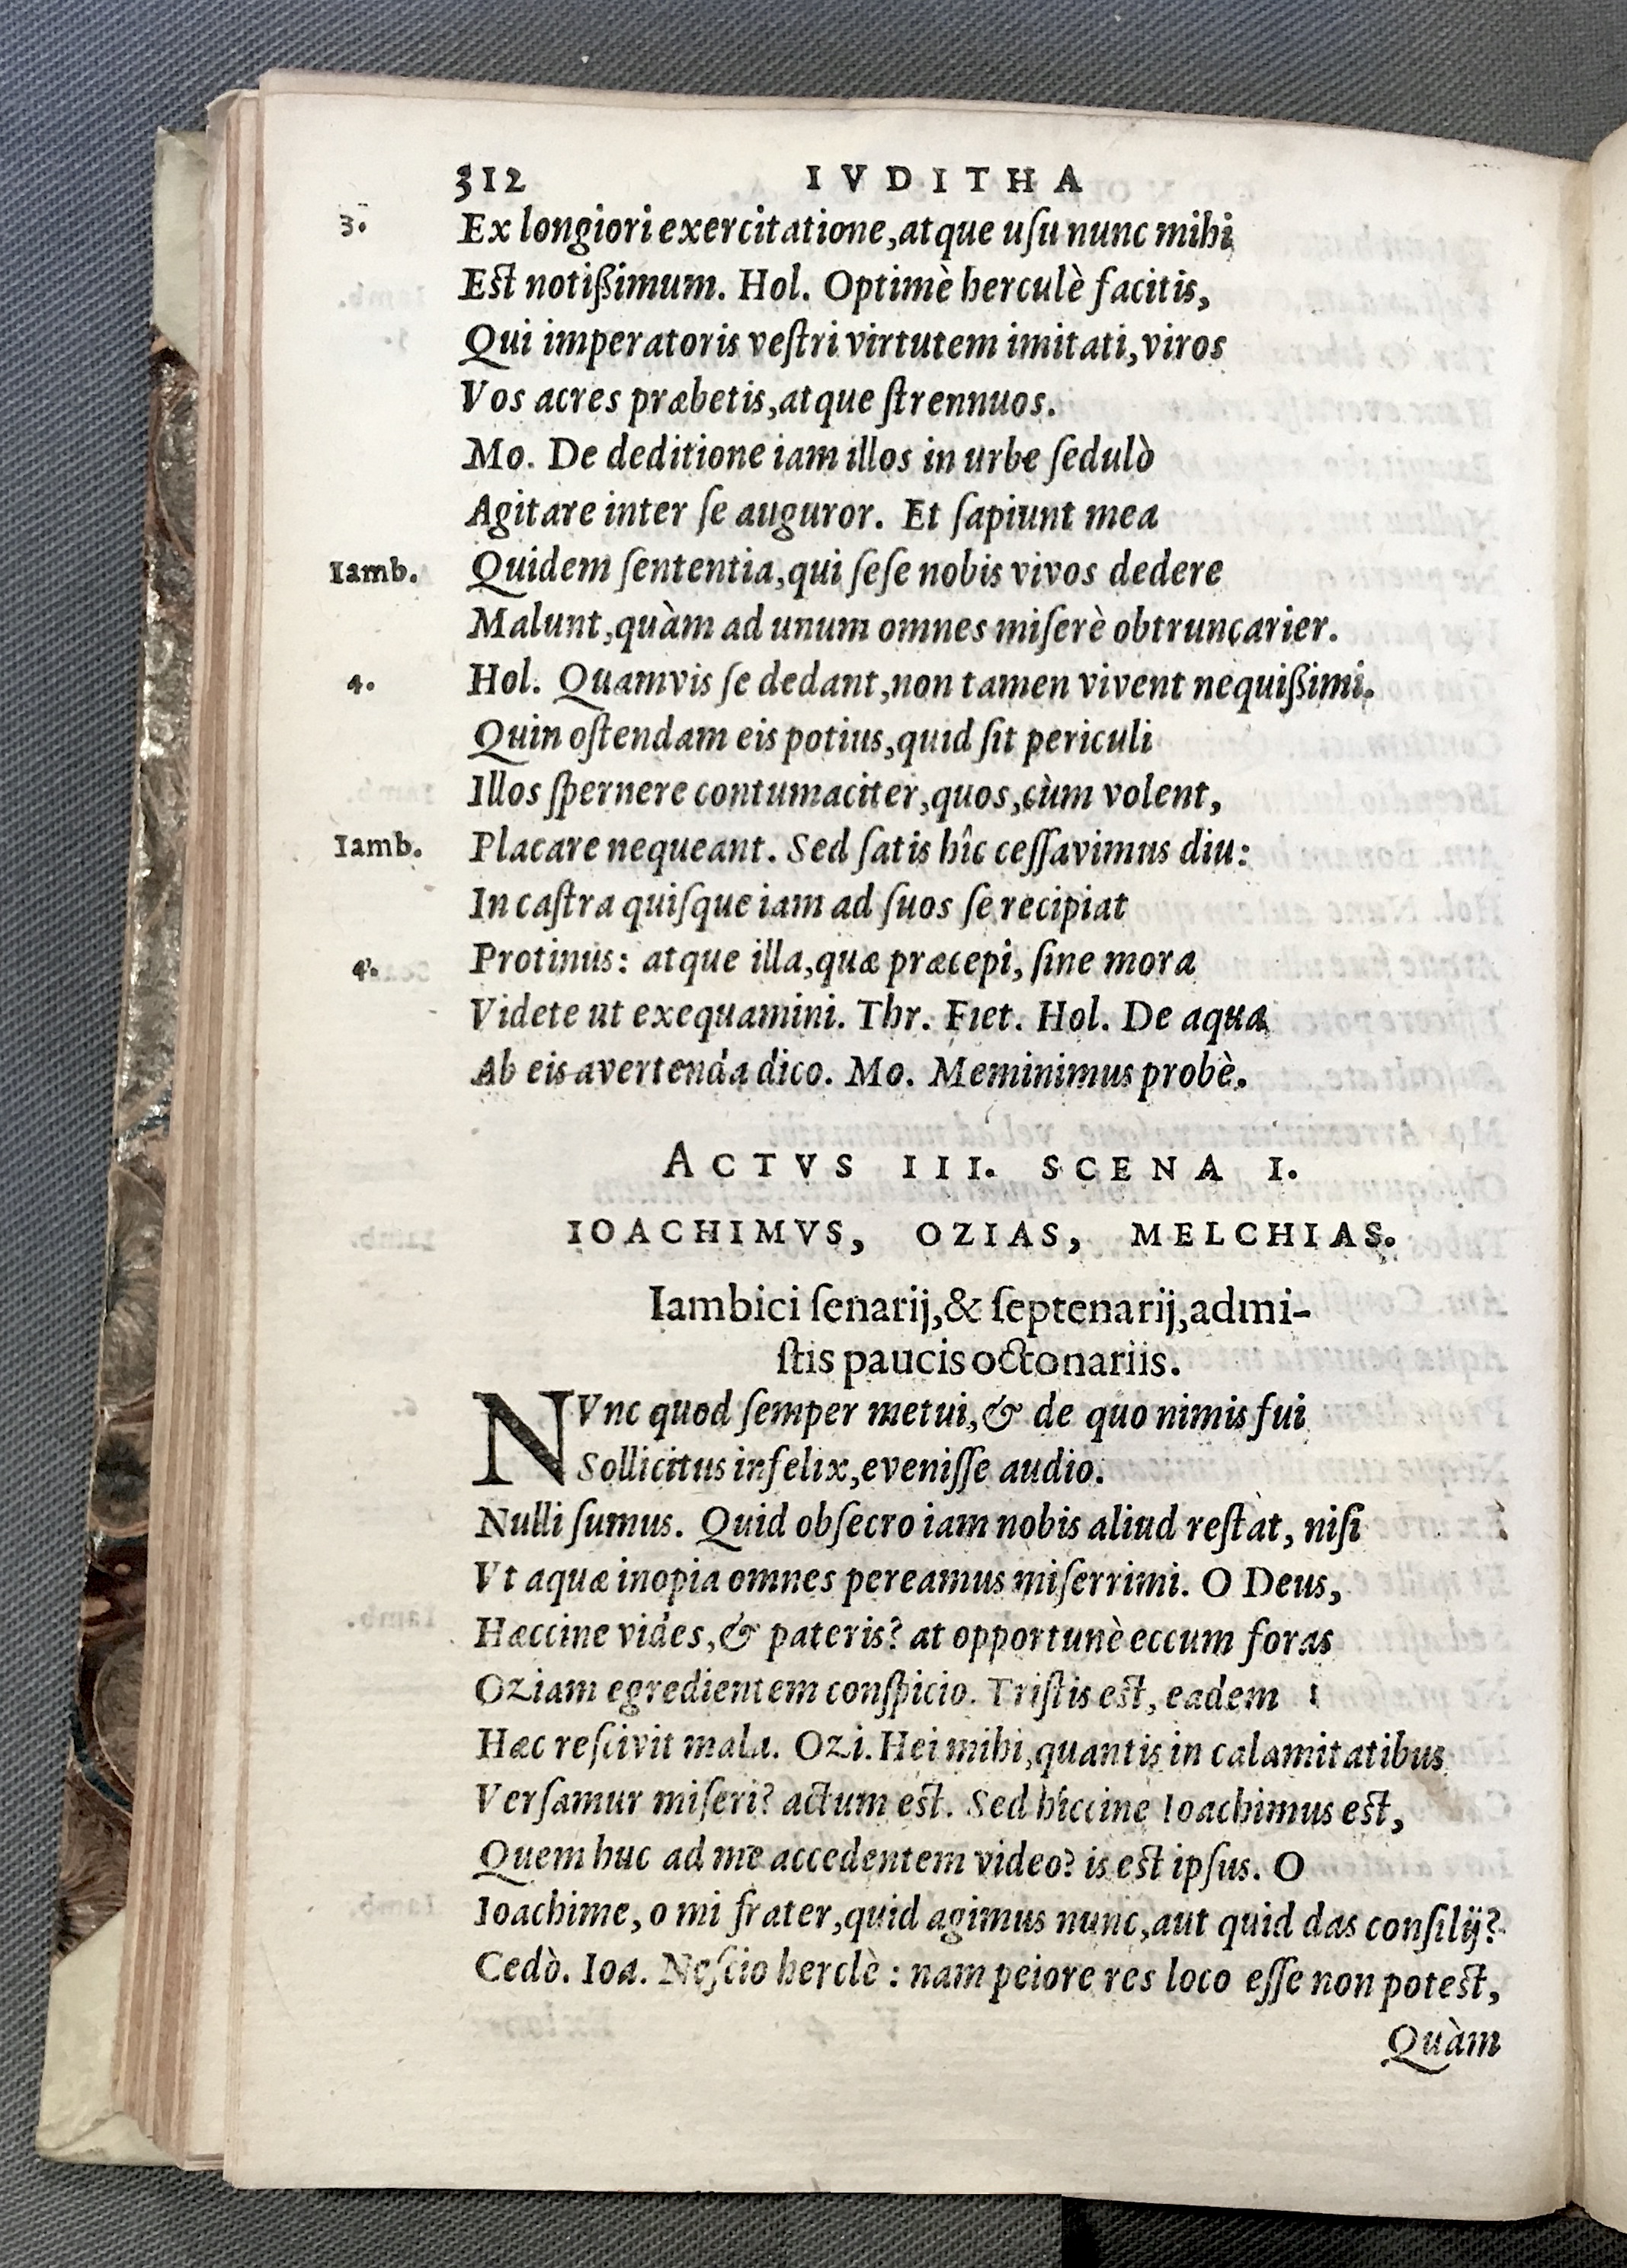 312 IVDITHA
3. Ex longiori exercitatione,atque uſu nunc mihi
Est notißimum. Hol. Optimè herculè facitis,
Qui imperatoris veſtri virtutem imitati,viros
Vos acres præbetis,atque ſtrennuos.
Mo. De deditione iam illos in urbe ſedulò
Agitare inter ſe auguror. Et ſapiunt mea
Iamb. Quidem ſententia,qui ſeſe nobis vivos dedere
Malunt,quàm ad unum omnes miſerè obtruncarier.
4. Hol. Quamvis ſe dedant,non tamen vivent nequißimi.
Quin oſtendam eis potius,quid ſit periculi
Illos ſpernere contumaciter,quos,cùm volent,
Iamb. Placare nequeant. Sed ſatis hîc ceſſavimus diu:
In caſtra quiſque iam ad ſuos ſe recipiat
4. Protinus: atque illa,quæ præcepi, ſine mora
Videte ut exequamini. Thr. Fiet. Hol. De aqua
Ab eis avertenda dico. Mo. Meminimus probè.
ACTVS III. SCENA I.
IOACHIMVS, OZIAS, MELCHIAS.
Iambici ſenarij,& ſeptenarij,admi-
ſtis paucis octonariis.
NVnc quod ſemper metui,& de quo nimis fui
Sollicitus infelix,eveniſſe audio.
Nulli ſumus. Quid obſecro iam nobis aliud reſtat, niſi
Vt aquæ inopia omnes pereamus miſerrimi. O Deus,
Hæccine vides,& pateris? at opportunè eccum foras
Oziam egredientem conſpicio. Triſtis est, eadem
Hæc reſcivit mala. Ozi. Hei mihi,quantis in calamitatibus
Verſamur miſeri? actum est. Sed hiccine Ioachimus est,
Quem huc ad me accedentem video? is est ipſus. O
Ioachime, o mi frater,quid agimus nunc,aut quid das conſilij?
Cedò. Ioa. Neſcio herclè : nam peiore res loco eſſe non potest,
Quàm